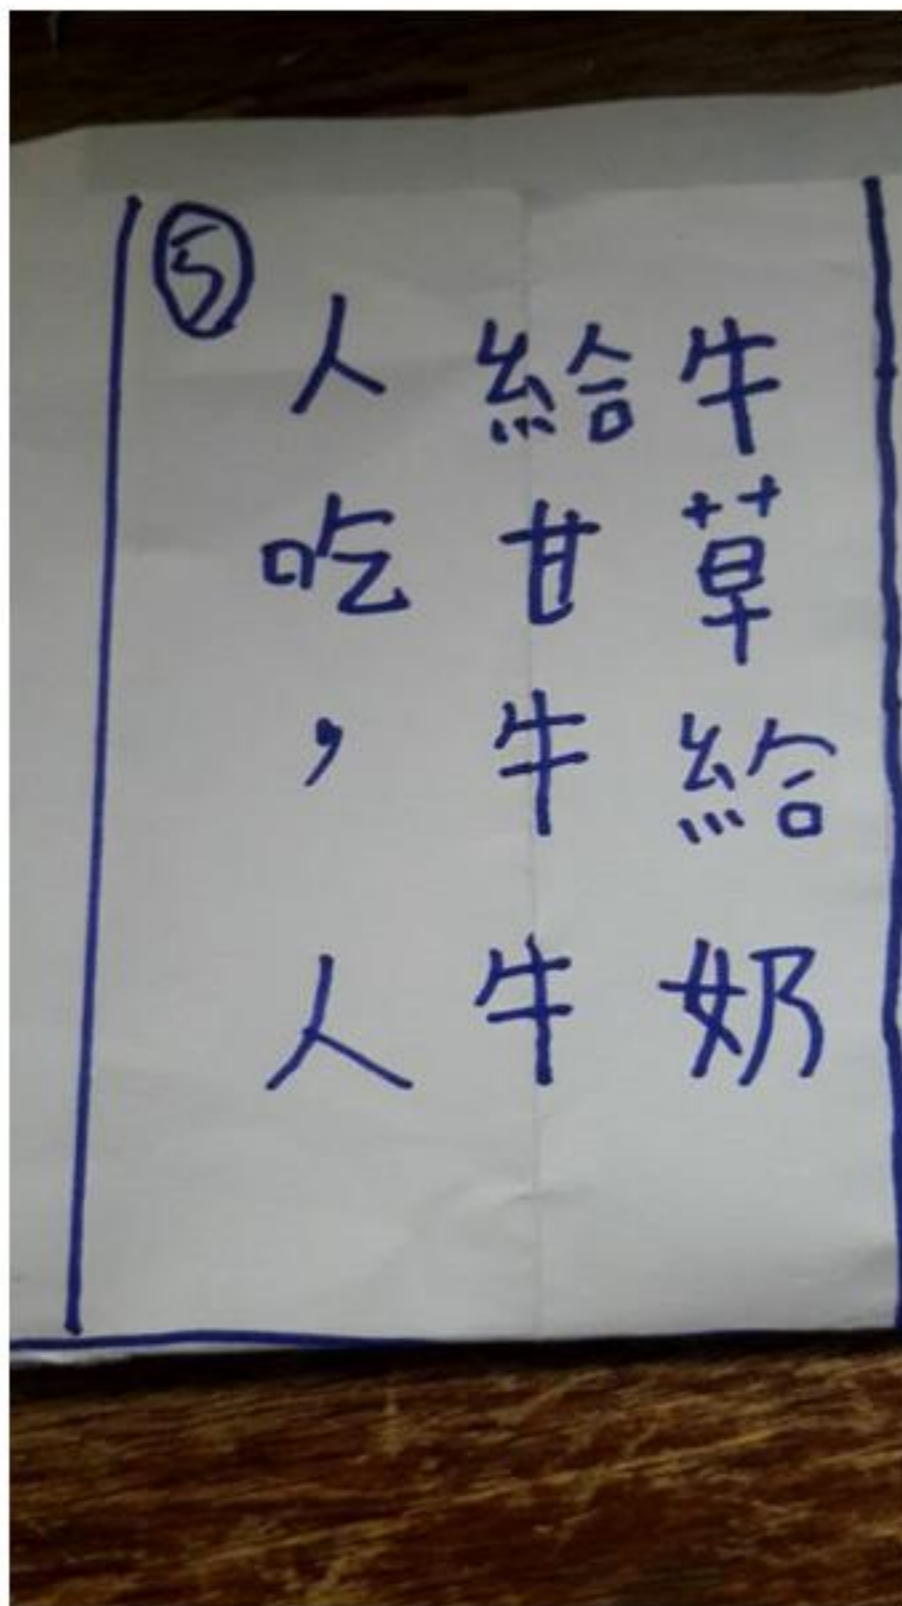 ⑤
人給牛
吃甘草
，牛給
人牛奶